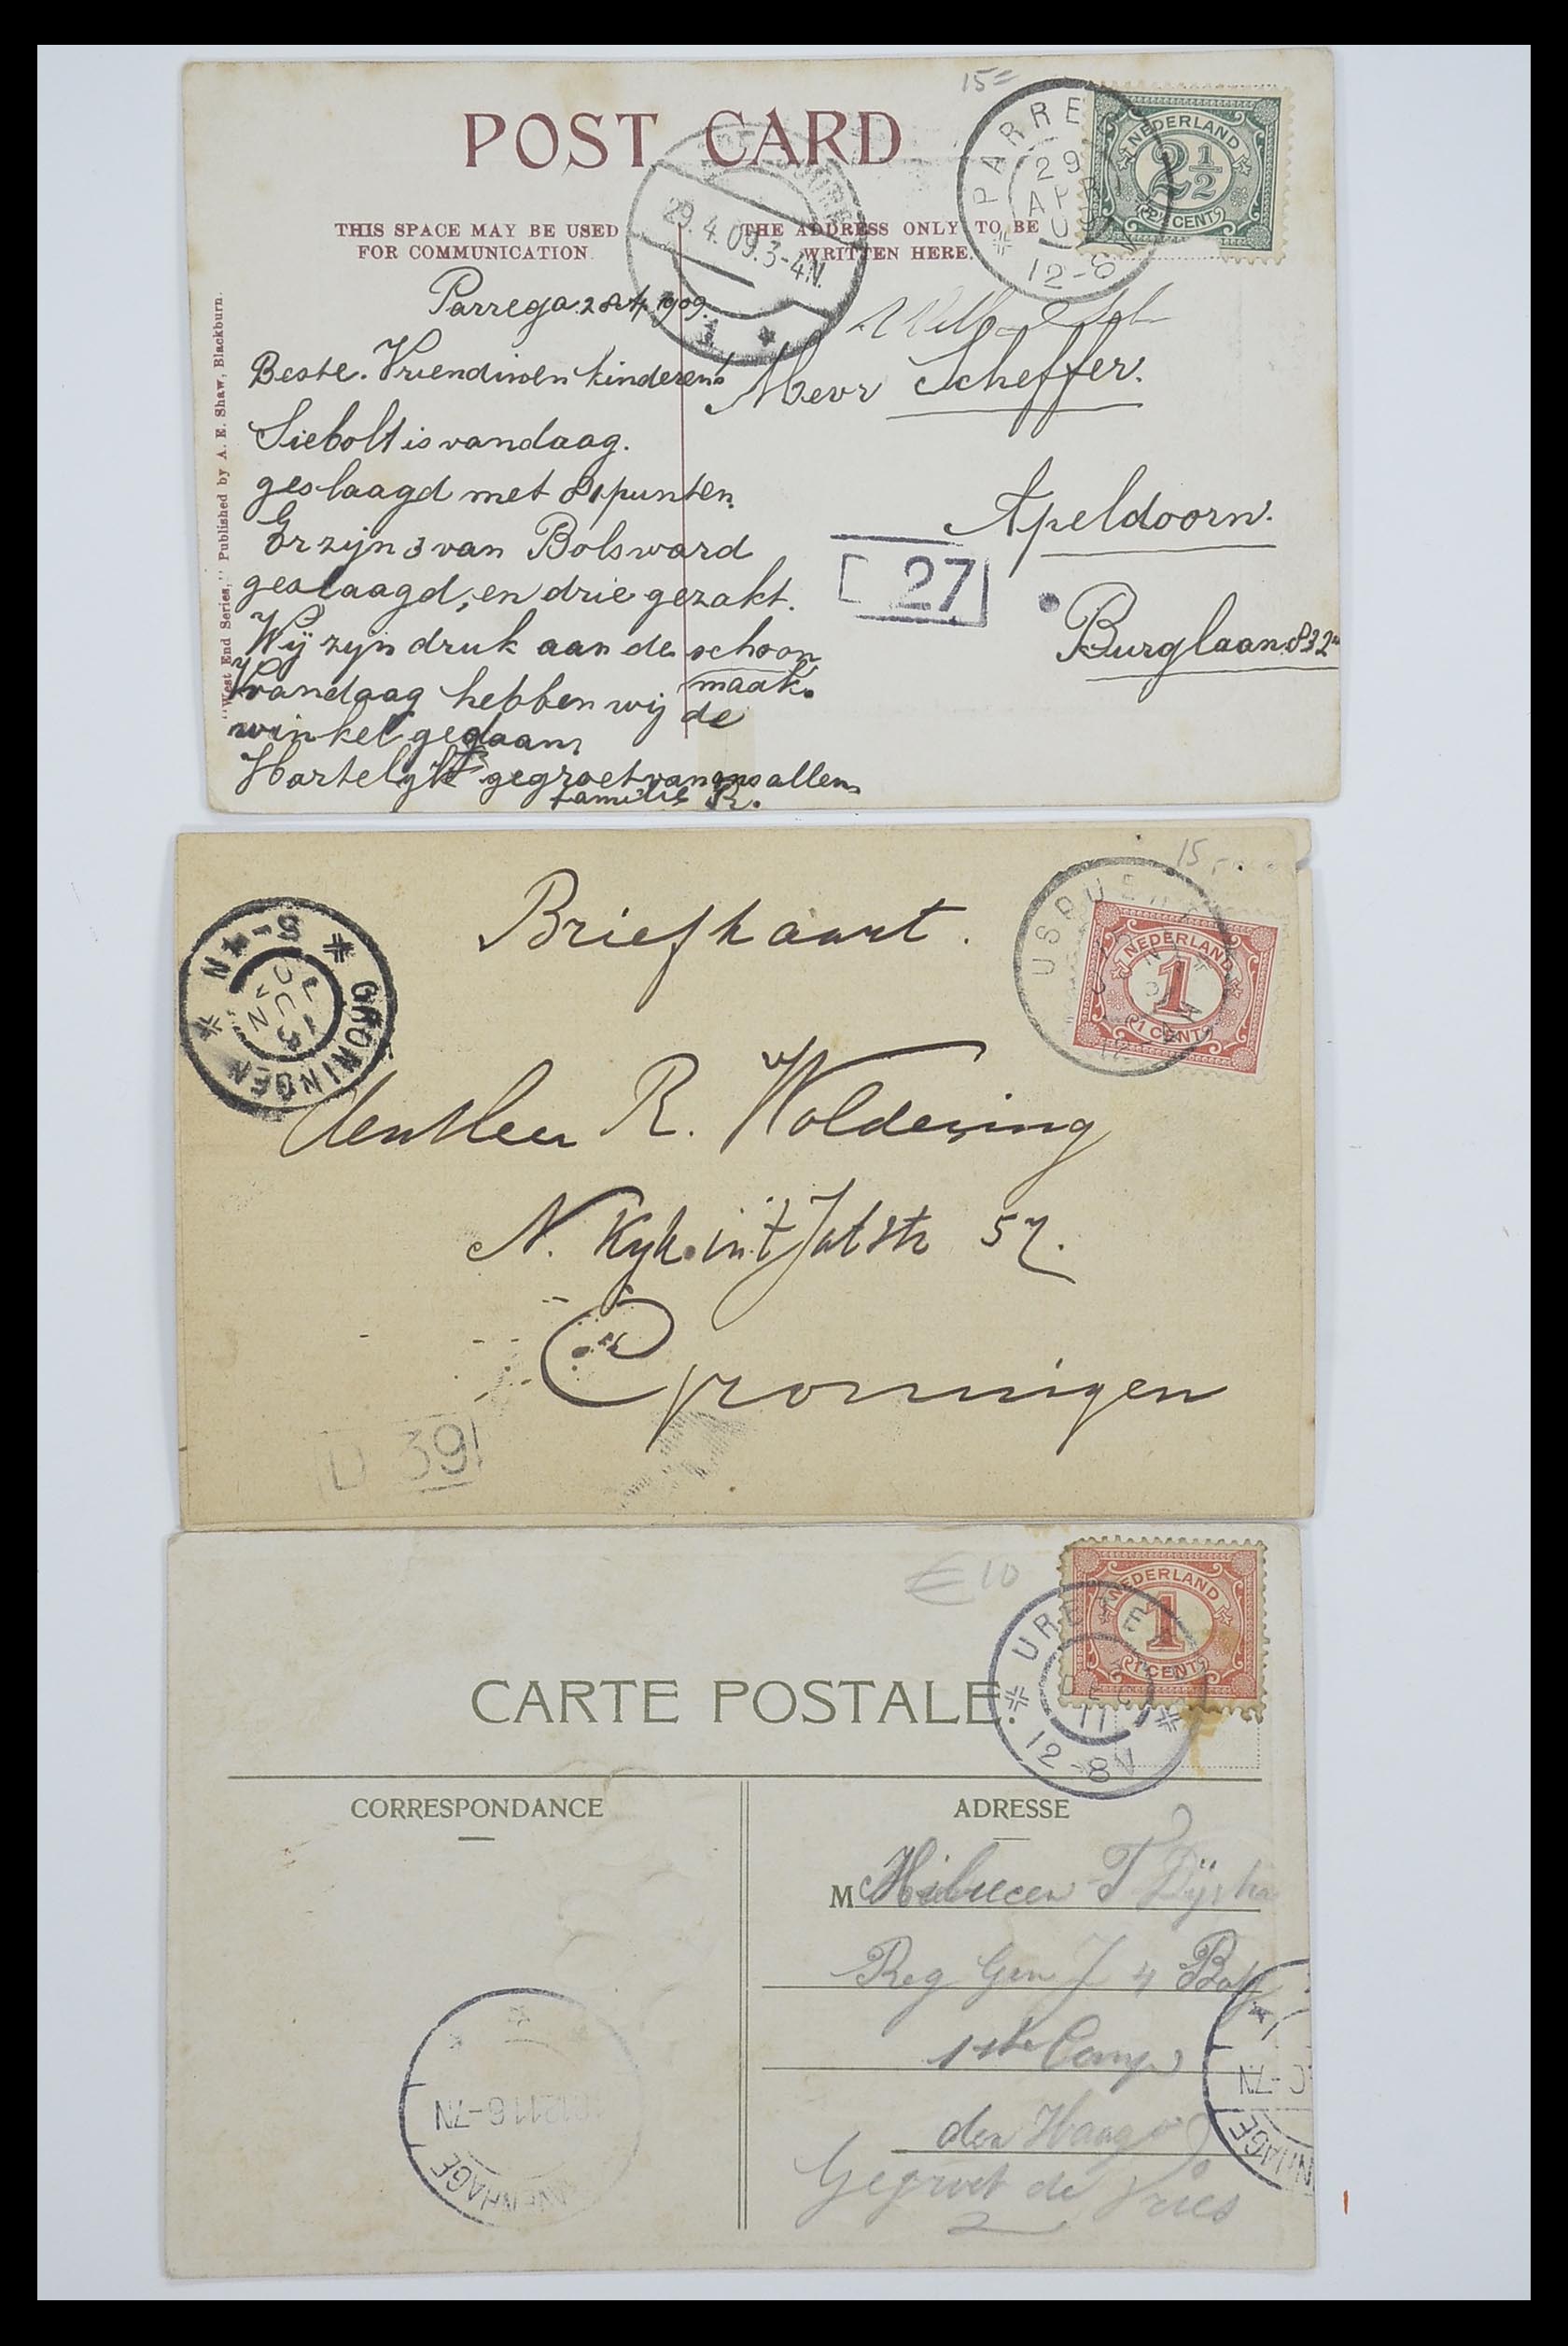 15=
POST CARD
PARRE
29
APR
12-8
NEDERLAND
2½
2½ CENT
29.4.09.3-4N.
1
THIS SPACE MAY BE USED
FOR COMMUNICATION.
THE ADDRESS ONLY TO BE
WRITTEN HERE.
"West End Series," Published by A. E. Shaw, Blackburn.
Parrega 28/4 1909.
Beste. Vriendin en kinderen!
Siebolt is vandaag.
geslaagd met 81 punten.
Er zijn 3 van Bolsward
geslaagd, en drie gezakt.
Wij zijn druk aan de schoon
maak.
Vandaag hebben wij de
winkel gedaan,
Hartelijk gegroet van ons allen,
Familie R.
Mevr Scheffer.
Apeldoorn.
27
Burglaan 832
15
Briefkaart.
USQUERT
NEDERLAND
1
1 CENT
GRONINGEN
JUN
Den Heer R. Woldering
N. Kyk in 't Jatstr 57.
Groningen
D 39
€10
NEDERLAND
1
1 CENT
URE
DEC
11
12-8V
CARTE POSTALE.
CORRESPONDANCE
ADRESSE
M
Reg Gren J 4 Bat
1ste Comp
den Haag
Gegroet de Vries
12.11 6-7N
ENHAGE
-7N
NHAGE